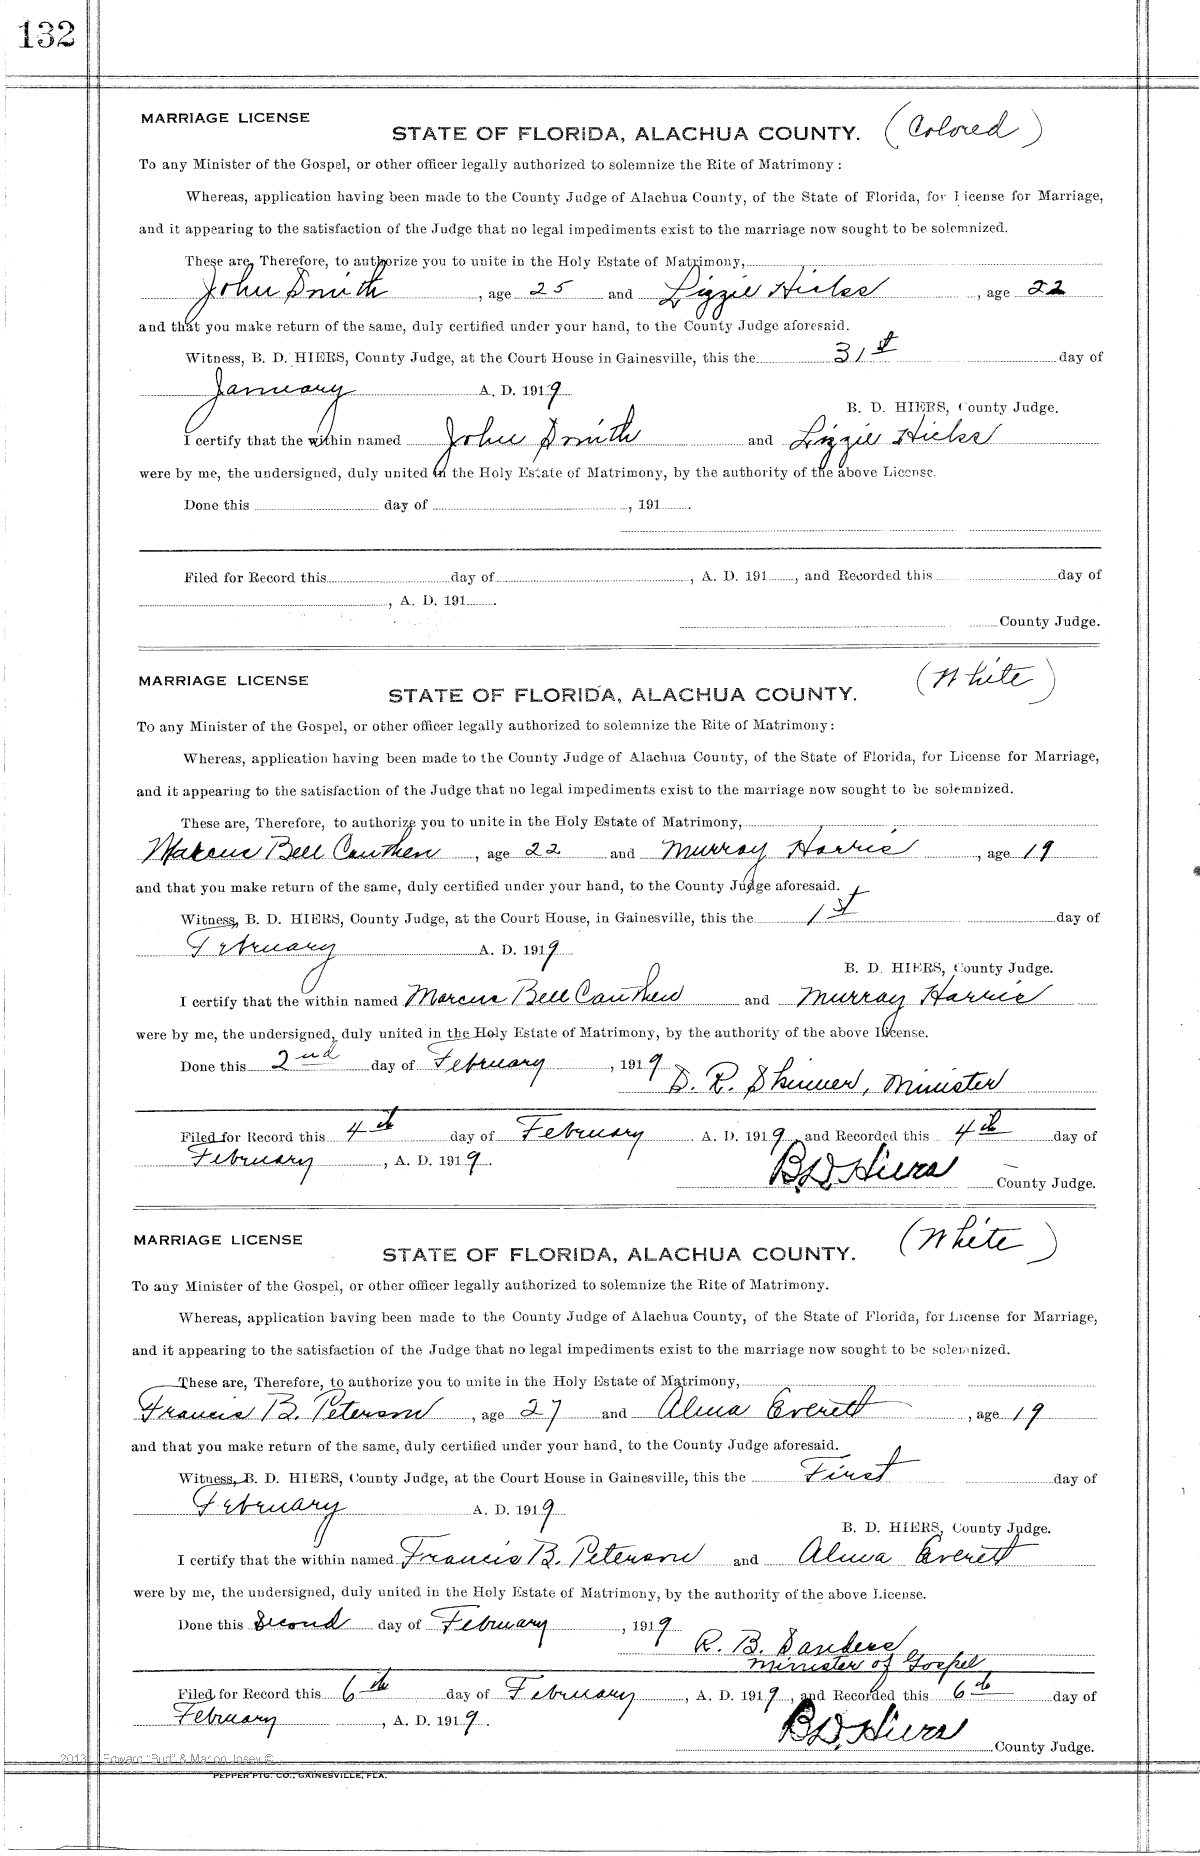 132
MARRIAGE LICENSE
STATE OF FLORIDA, ALACHUA COUNTY. (Colored)
To any Minister of the Gospel, or other officer legally authorized to solemnize the Rite of Matrimony:
Whereas, application having been made to the County Judge of Alachua County, of the State of Florida, for License for Marriage,
and it appearing to the satisfaction of the Judge that no legal impediments exist to the marriage now sought to be solemnized.
These are, Therefore, to authorize you to unite in the Holy Estate of Matrimony,
John Smith, age 25 and Lizzie Hicks, age 22
and that you make return of the same, duly certified under your hand, to the County Judge aforesaid.
Witness, B. D. HIERS, County Judge, at the Court House in Gainesville, this the 31st day of
January A. D. 1919
B. D. HIERS, County Judge.
I certify that the within named John Smith and Lizzie Hicks
were by me, the undersigned, duly united in the Holy Estate of Matrimony, by the authority of the above License.
Done this day of , 191 .
Filed for Record this day of , A. D. 191 , and Recorded this day of
, A. D. 191 .
County Judge.
MARRIAGE LICENSE
STATE OF FLORIDA, ALACHUA COUNTY. (White)
To any Minister of the Gospel, or other officer legally authorized to solemnize the Rite of Matrimony:
Whereas, application having been made to the County Judge of Alachua County, of the State of Florida, for License for Marriage,
and it appearing to the satisfaction of the Judge that no legal impediments exist to the marriage now sought to be solemnized.
These are, Therefore, to authorize you to unite in the Holy Estate of Matrimony,
Marcus Bell Cauthen, age 22 and Murray Harris, age 19
and that you make return of the same, duly certified under your hand, to the County Judge aforesaid.
Witness, B. D. HIERS, County Judge, at the Court House, in Gainesville, this the 1st day of
February A. D. 1919
B. D. HIERS, County Judge.
I certify that the within named Marcus Bell Cauthen and Murray Harris
were by me, the undersigned, duly united in the Holy Estate of Matrimony, by the authority of the above License.
Done this 2nd day of February, 1919
D. R. Skinner, Minister
Filed for Record this 4th day of February A. D. 1919, and Recorded this 4th day of
February, A. D. 1919.
B D Hiers County Judge.
MARRIAGE LICENSE
STATE OF FLORIDA, ALACHUA COUNTY. (White)
To any Minister of the Gospel, or other officer legally authorized to solemnize the Rite of Matrimony.
Whereas, application having been made to the County Judge of Alachua County, of the State of Florida, for License for Marriage,
and it appearing to the satisfaction of the Judge that no legal impediments exist to the marriage now sought to be solemnized.
These are, Therefore, to authorize you to unite in the Holy Estate of Matrimony,
Francis B. Peterson, age 27 and Alma Everett, age 19
and that you make return of the same, duly certified under your hand, to the County Judge aforesaid.
Witness, B. D. HIERS, County Judge, at the Court House in Gainesville, this the First day of
February A. D. 1919
B. D. HIERS, County Judge.
I certify that the within named Francis B. Peterson and Alma Everett
were by me, the undersigned, duly united in the Holy Estate of Matrimony, by the authority of the above License.
Done this Second day of February, 1919
R. B. Sanders
Minister of Gospel
Filed for Record this 6th day of February, A. D. 1919, and Recorded this 6th day of
February, A. D. 1919.
B D Hiers County Judge.
2013 Edward "Bud" & Marion Josey ©
PEPPER PTG. CO., GAINESVILLE, FLA.